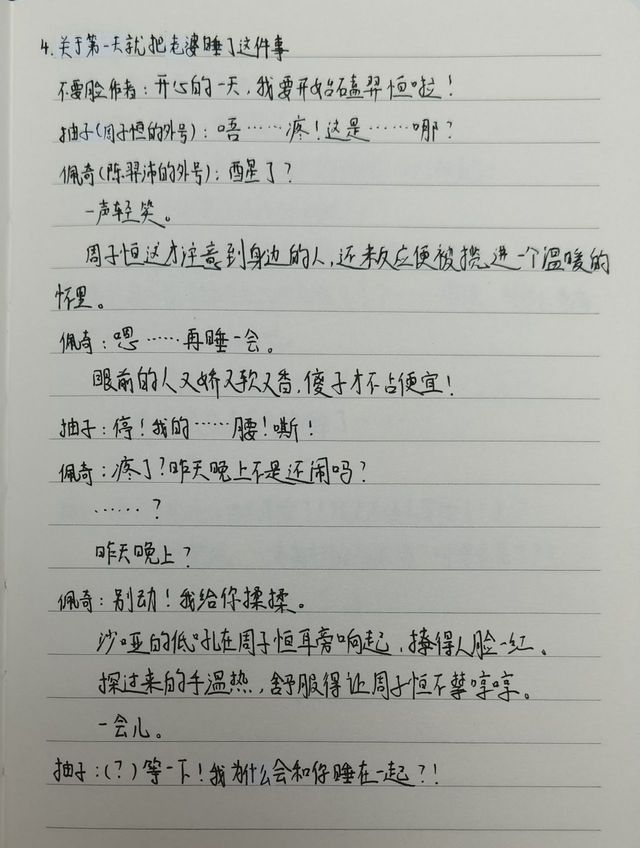 4. 关于第一天就把老婆睡了这件事
不要脸作者：开心的一天，我要开始磕羿恒啦！
抽子(周子恒的外号)：唔……疼！这是……哪？
佩奇(陈羿沛的外号)：酉星了？
一声轻笑。
周子恒这才注意到身边的人，还未反应便被揽进一个温暖的
怀里。
佩奇：嗯……再睡一会。
眼前的人又娇又软又香，傻子才不占便宜！
抽子：停！我的……腰！嘶！
佩奇：疼了？昨天晚上不是还闹吗？
……？
昨天晚上？
佩奇：别动！我给你揉揉。
沙哑的低吼在周子恒耳旁响起，撩得人脸一红。
探过来的手温热，舒服得让周子恒不禁哼哼。
一会儿。
抽子：(？)等一下！我为什么会和你睡在一起？！